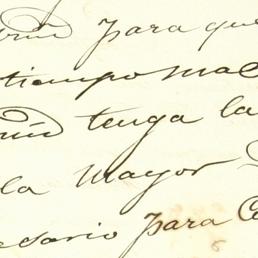 para que
tiempo mal
tenga la
la mayor
para